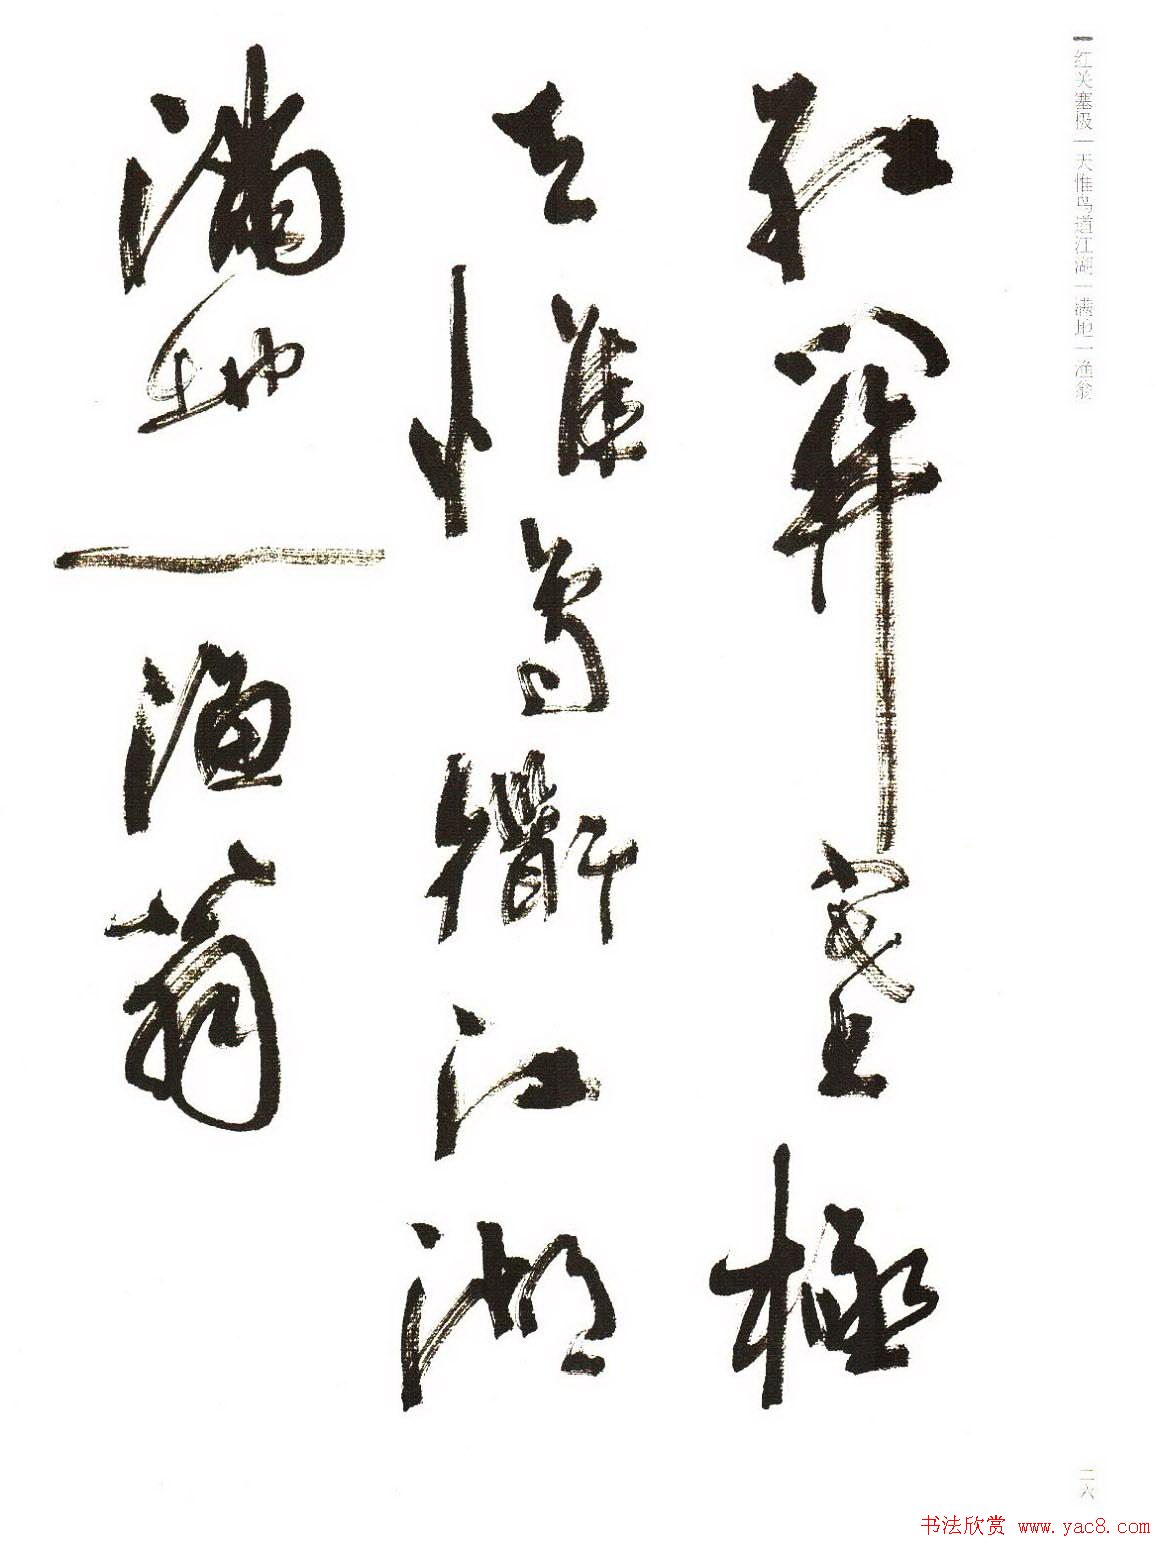 红关塞极一天惟鸟道江湖一满地一渔翁
紅關塞極
天惟鳥衟江湖
滿地一漁翁
二六
书法欣赏 www.yac8.com